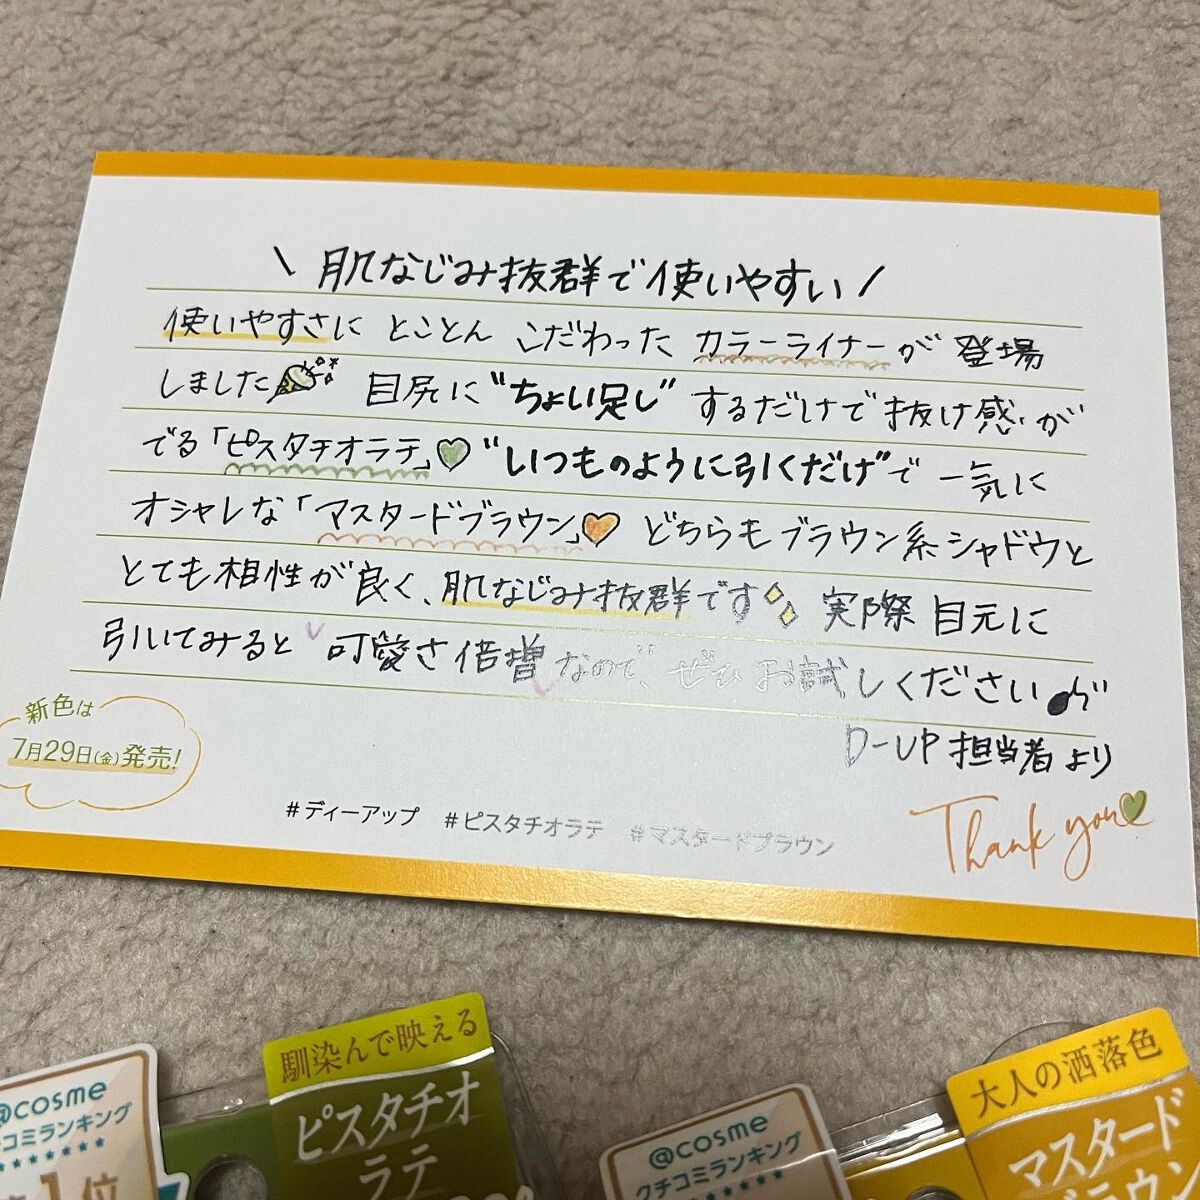 \ 肌なじみ抜群で使いやすい /
使いやすさに とことん こだわった カラーライナーが 登場
しました 目尻に"ちょい足し" するだけで 抜け感が
でる「ピスタチオラテ」 "いつものように引くだけ"で 一気に
オシャレな「マスタードブラウン」 どちらもブラウン系シャドウと
とても相性が良く、肌なじみ抜群です 実際 目元に
引いてみると 可愛さ倍増 なので、ぜひお試しください♪
D-UP 担当者より
新色は
7月29日(金)発売!
#ディーアップ #ピスタチオラテ #マスタードブラウン
Thank you
馴染んで映える
ピスタチオ
ラテ
@cosme
クチコミランキング
1位
大人の洒落色
マスタード
ブラウン
@cosme
クチコミランキング